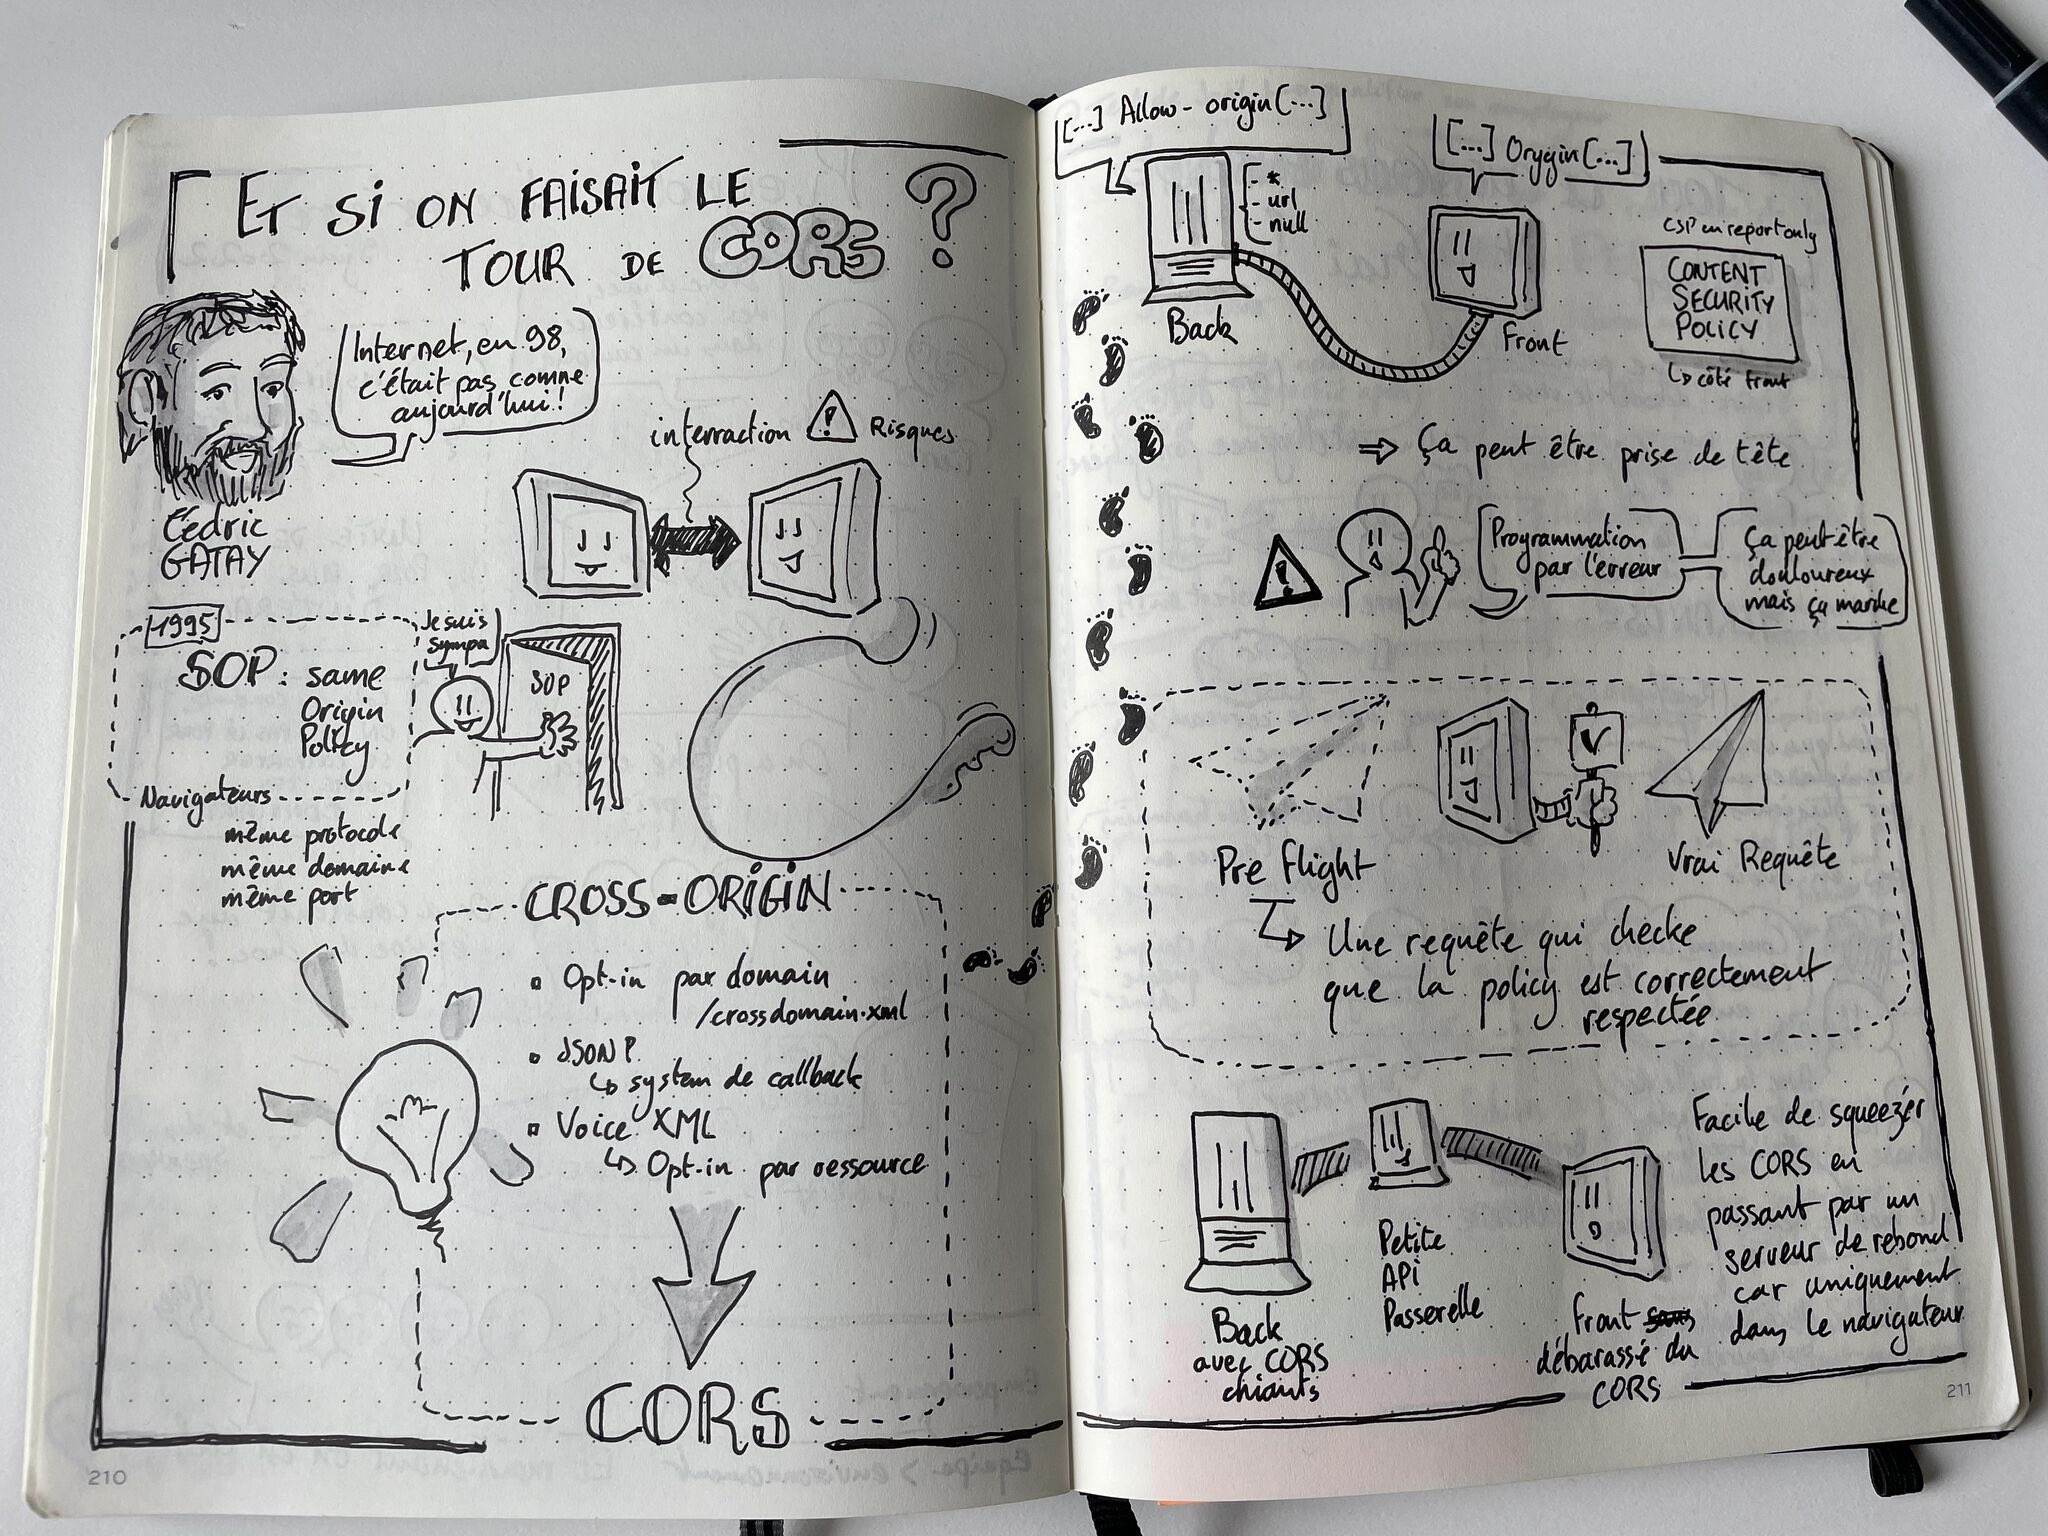 ET SI ON FAISAIT LE
TOUR DE CORS ?
Internet, en 98,
c'était pas comme
aujourd'hui !
Cédric
GATAY
interraction ! Risques
1995
SOP : same
Origin
Policy
Navigateurs
même protocole
même domaine
même port
Je suis
sympa
SOP
CROSS-ORIGIN
Opt-in par domain
/crossdomain.xml
JSONP
↳ system de callback
Voice XML
↳ Opt-in par ressource
CORS
210
[...] Allow-origin [...]
- *
- url
- null
Back
[...] Orygin [...]
Front
CSP en report only
CONTENT
SECURITY
POLICY
↳ côté front
⇒ ça peut être prise de tête
!
Programmation
par l'erreur
ça peut être
douloureux
mais ça marche
Pre flight
Vrai Requête
↳ Une requête qui checke
que la policy est correctement
respectée
Back
avec CORS
chiants
Petite
API
Passerelle
Front sans
débarassé du
CORS
Facile de squeezer
les CORS en
passant par un
serveur de rebond
car uniquement
dans le navigateur
211